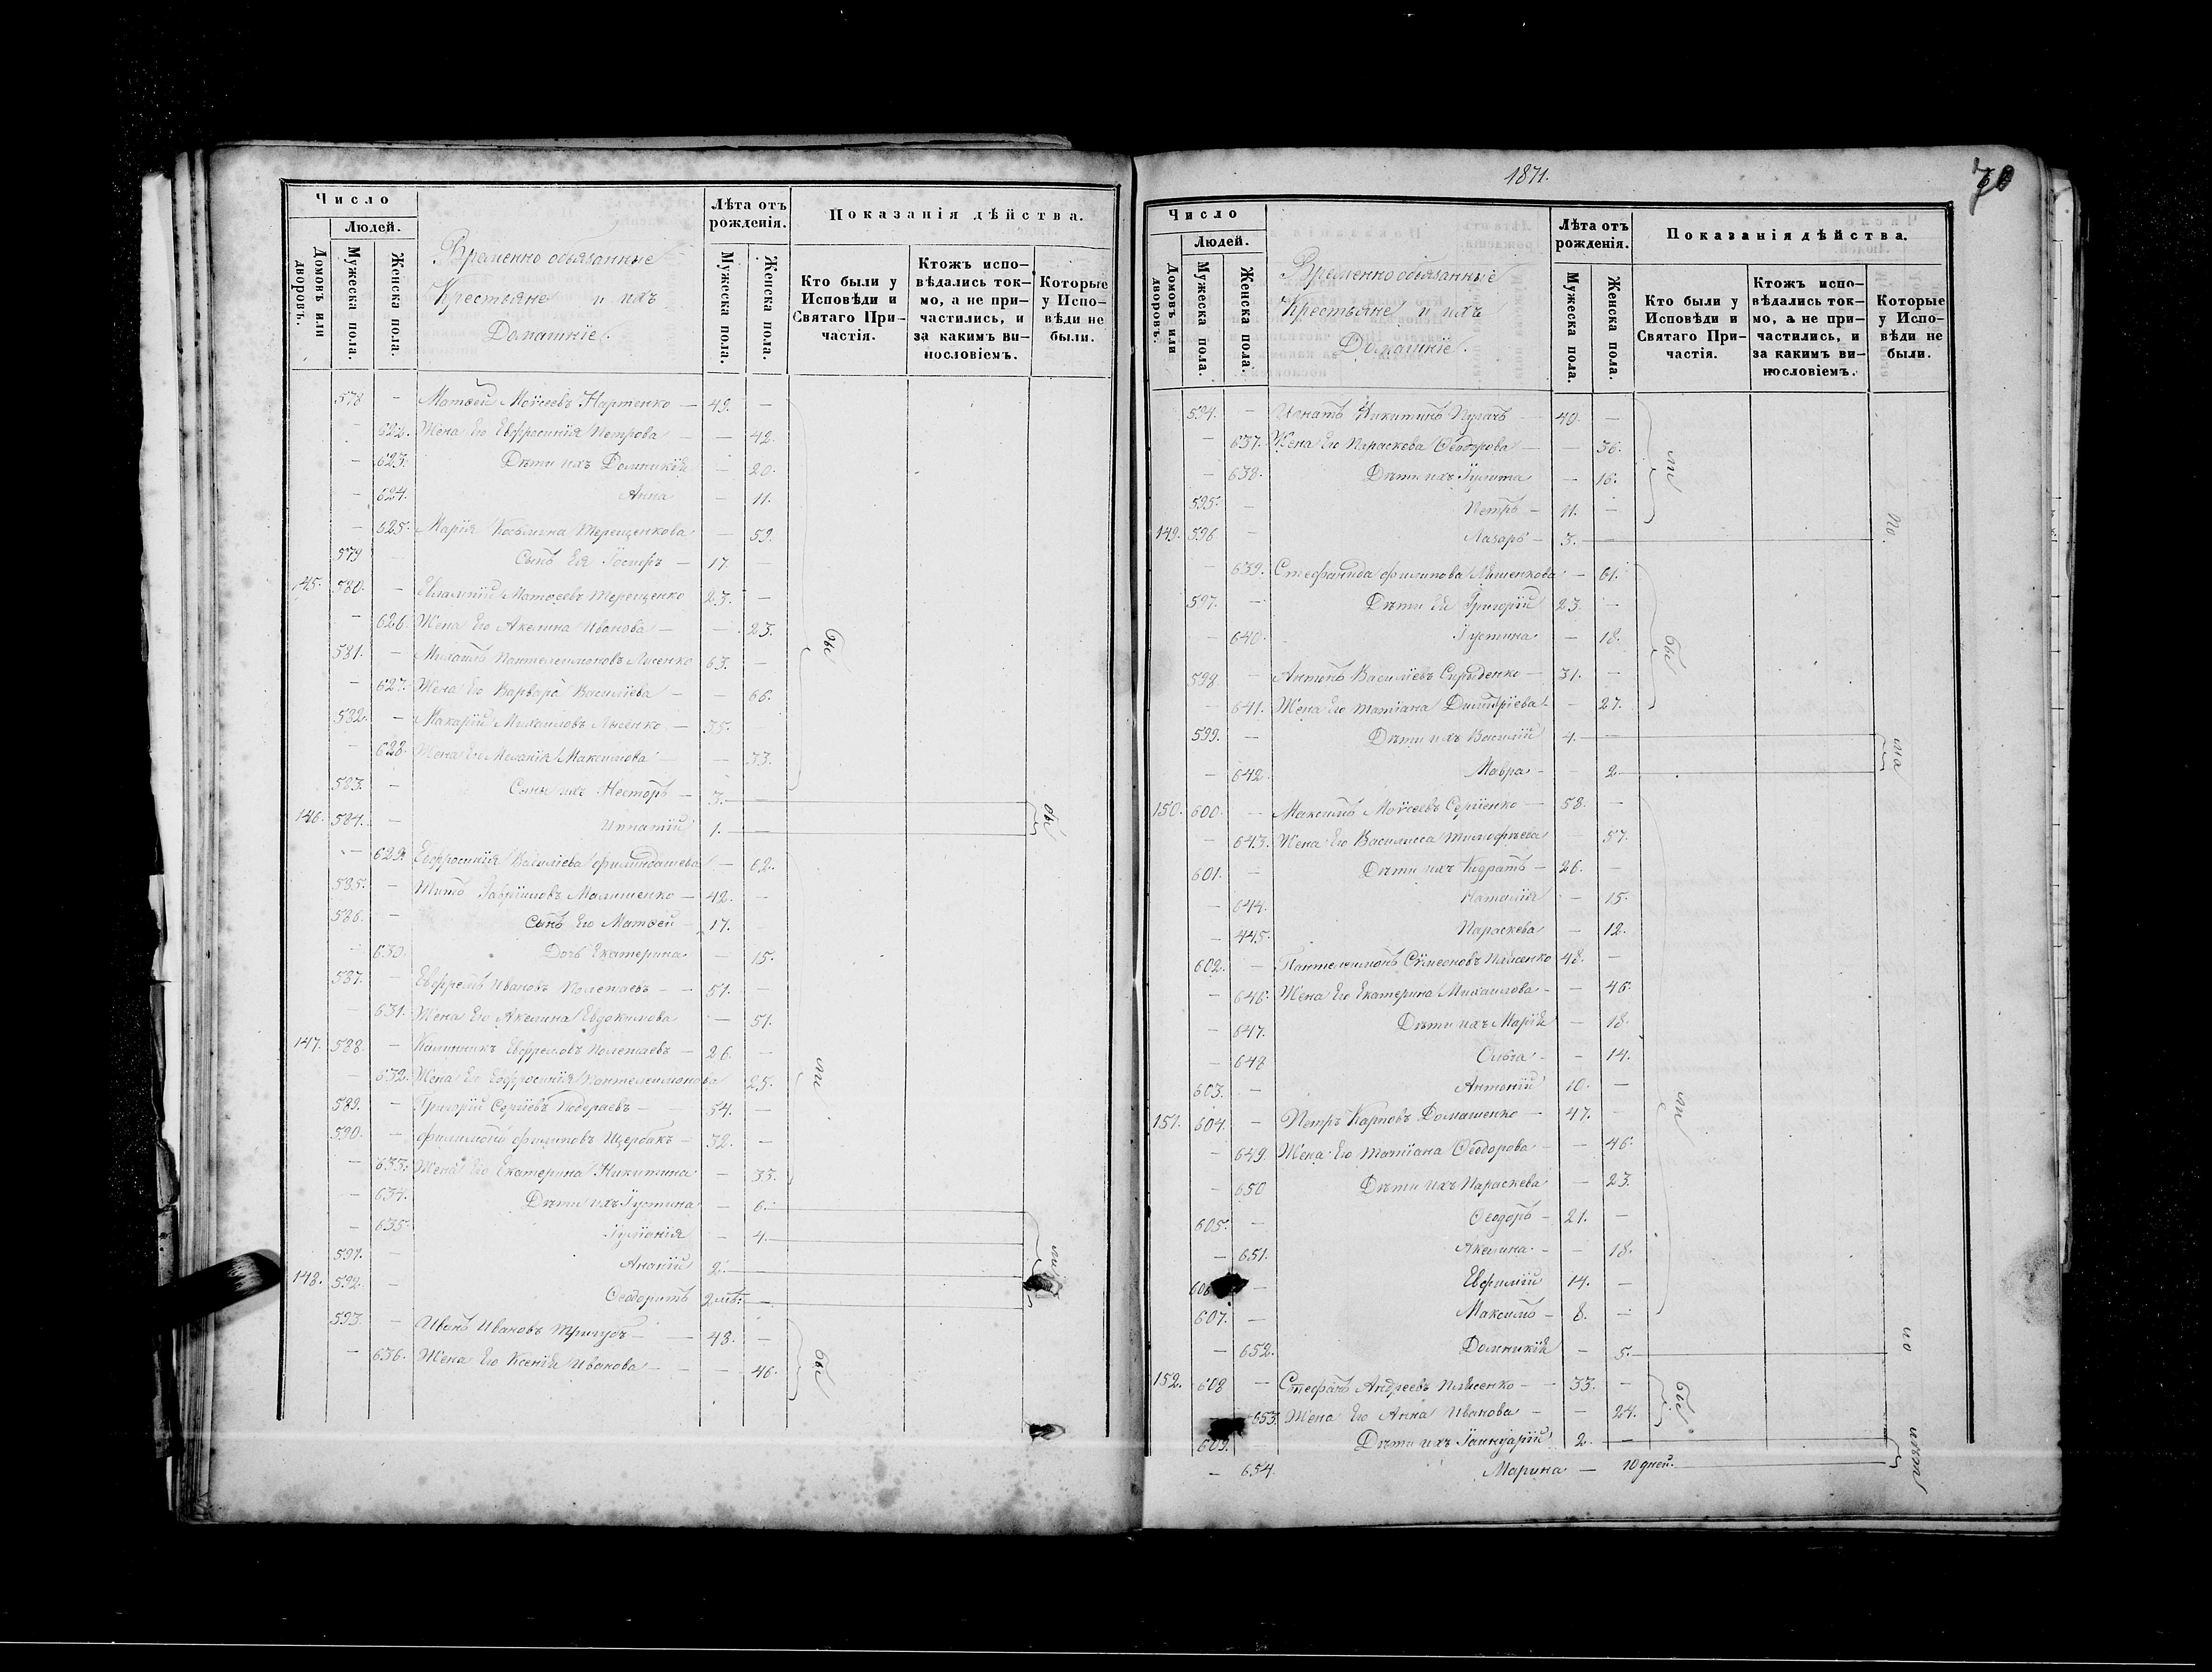 Число
Людей.
Домовъ или дворовъ.
Мужеска пола.
Женска пола.
Временно обязанные
Крестьяне и ихъ
Домашніе.
Лѣта отъ рожденія.
Мужеска пола.
Женска пола.
Показанія дѣйства.
Кто были у Исповѣди и Святаго При-
частія.
Ктожъ испо-
вѣдались ток-
мо, а не при-
частились, и
за какимъ ви-
нословіемъ.
Которые
у Испо-
вѣди не
были.
578 — Матѳей Моѵсеевъ Нартенко — 49. —
— 622. Жена Его Евфросинія Петрова — — 42.
— 623. Дѣти ихъ Домникія — 20.
— 624. Анна — 11.
— 625. Марія Косьмина Терещенкова — 59.
579 — Сынъ Ея Іосифъ — 17. —
145. 580. — Евлампій Матѳеевъ Терещенко 23. —
— 626. Жена Его Акелина Иванова — — 23.
581. — Михаилъ Пантелеимоновъ Лысенко 63. —
— 627. Жена Его Варвара Василіева — — 66.
582. — Макарій Михаиловъ Лысенко — 35.
— 628. Жена Его Меланія Максимова — — 33.
583. — Сыны ихъ Несторъ — 3. —
146. 584. — Ипатій 1. —
— 629. Евфросинія Василіева — 62.
585. — Титъ Гавріиловъ Малишенко — 42. —
586. — Сынъ Его Матѳей 17. —
— 630. Дочь Екатерина — 15.
587. — Евфремъ Ивановъ Полепаевъ — 51. —
— 631. Жена Его Акелина Евдокимова — 51.
147. 588. — Калинникъ Евфремовъ Полепаевъ — 26. —
— 632. Жена Его Евфросинія Пантелеимонова 25.
589. — Григорій Сергіевъ — 54. —
590. — Филимонъ Филиповъ Щербакъ — 32. —
— 633. Жена Его Екатерина Никитина — 33.
— 634. Дѣти ихъ Іустина — 6.
— 635. Іуліанія — 4.
591. — Ананій 2.
148. 592. — Ѳеодоритъ —
593. — Иванъ Ивановъ Тригубъ — 48. —
— 636. Жена Его Ксенія Иванова — — 46.
бы
ли
бы
1871.
70
Число
Людей.
Домовъ или дворовъ.
Мужеска пола.
Женска пола.
Временно обязанные
Крестьяне и ихъ
Домашніе.
Лѣта отъ рожденія.
Мужеска пола.
Женска пола.
Показанія дѣйства.
Кто были у
Исповѣди и
Святаго При-
частія.
Ктожъ испо-
вѣдались ток-
мо, а не при-
частились, и
за какимъ ви-
нословіемъ.
Которые
у Испо-
вѣди не
были.
594. — Игнатъ Никитинъ Пугачъ — 40. —
— 637. Жена Его Параскева Ѳеодорова — — 36.
— 638. Дѣти ихъ Іулита — 16.
595. — Петръ — 11. —
149. 596 — Лазарь — 3.
— 639. Стефанида Филипова — 61.
597. — Дѣти Ея Григорій 23. —
— 640. Іустина — 18.
598 — Антонъ Василіевъ Спиденко — 31. —
— 641. Жена Его Татіана Димитріева — 27.
599. — Дѣти ихъ Василій 4. —
— 642. Мавра — 2.
150. 600. — Максимъ Моѵсеевъ Сергіенко — 58. —
— 643. Жена Его Василисса Тимоѳеева — 57.
601. — Дѣти ихъ Кодратъ — 26. —
— 644. Наталія — 15.
— 445. Параскева — 12.
602. — Пантелеимонъ Сѵмеоновъ 48. —
— 646. Жена Его Екатерина Михаилова — — 46.
— 647. Дѣти ихъ Марія — 18.
— 648 Ольга — — 14.
603. — Антоній 10. —
151. 604. — Петръ Карповъ Домашенко — 47. —
— 649 Жена Его Татіана Ѳеодорова — — 46.
— 650 Дѣти ихъ Параскева — 23.
605. — Ѳеодоръ — 21. —
— 651. Акелина — — 18.
606 — Евфимій 14. —
607. — Максимъ — 8. —
— 652. Домникія — 5.
152. 608 — Стефанъ Андреевъ — 33. —
— 653. Жена Его Анна Иванова — — 24.
609. Дѣти ихъ Іаннуарій 2. —
— 654. Марина — 10 дней.
ли
бы
ли
бы